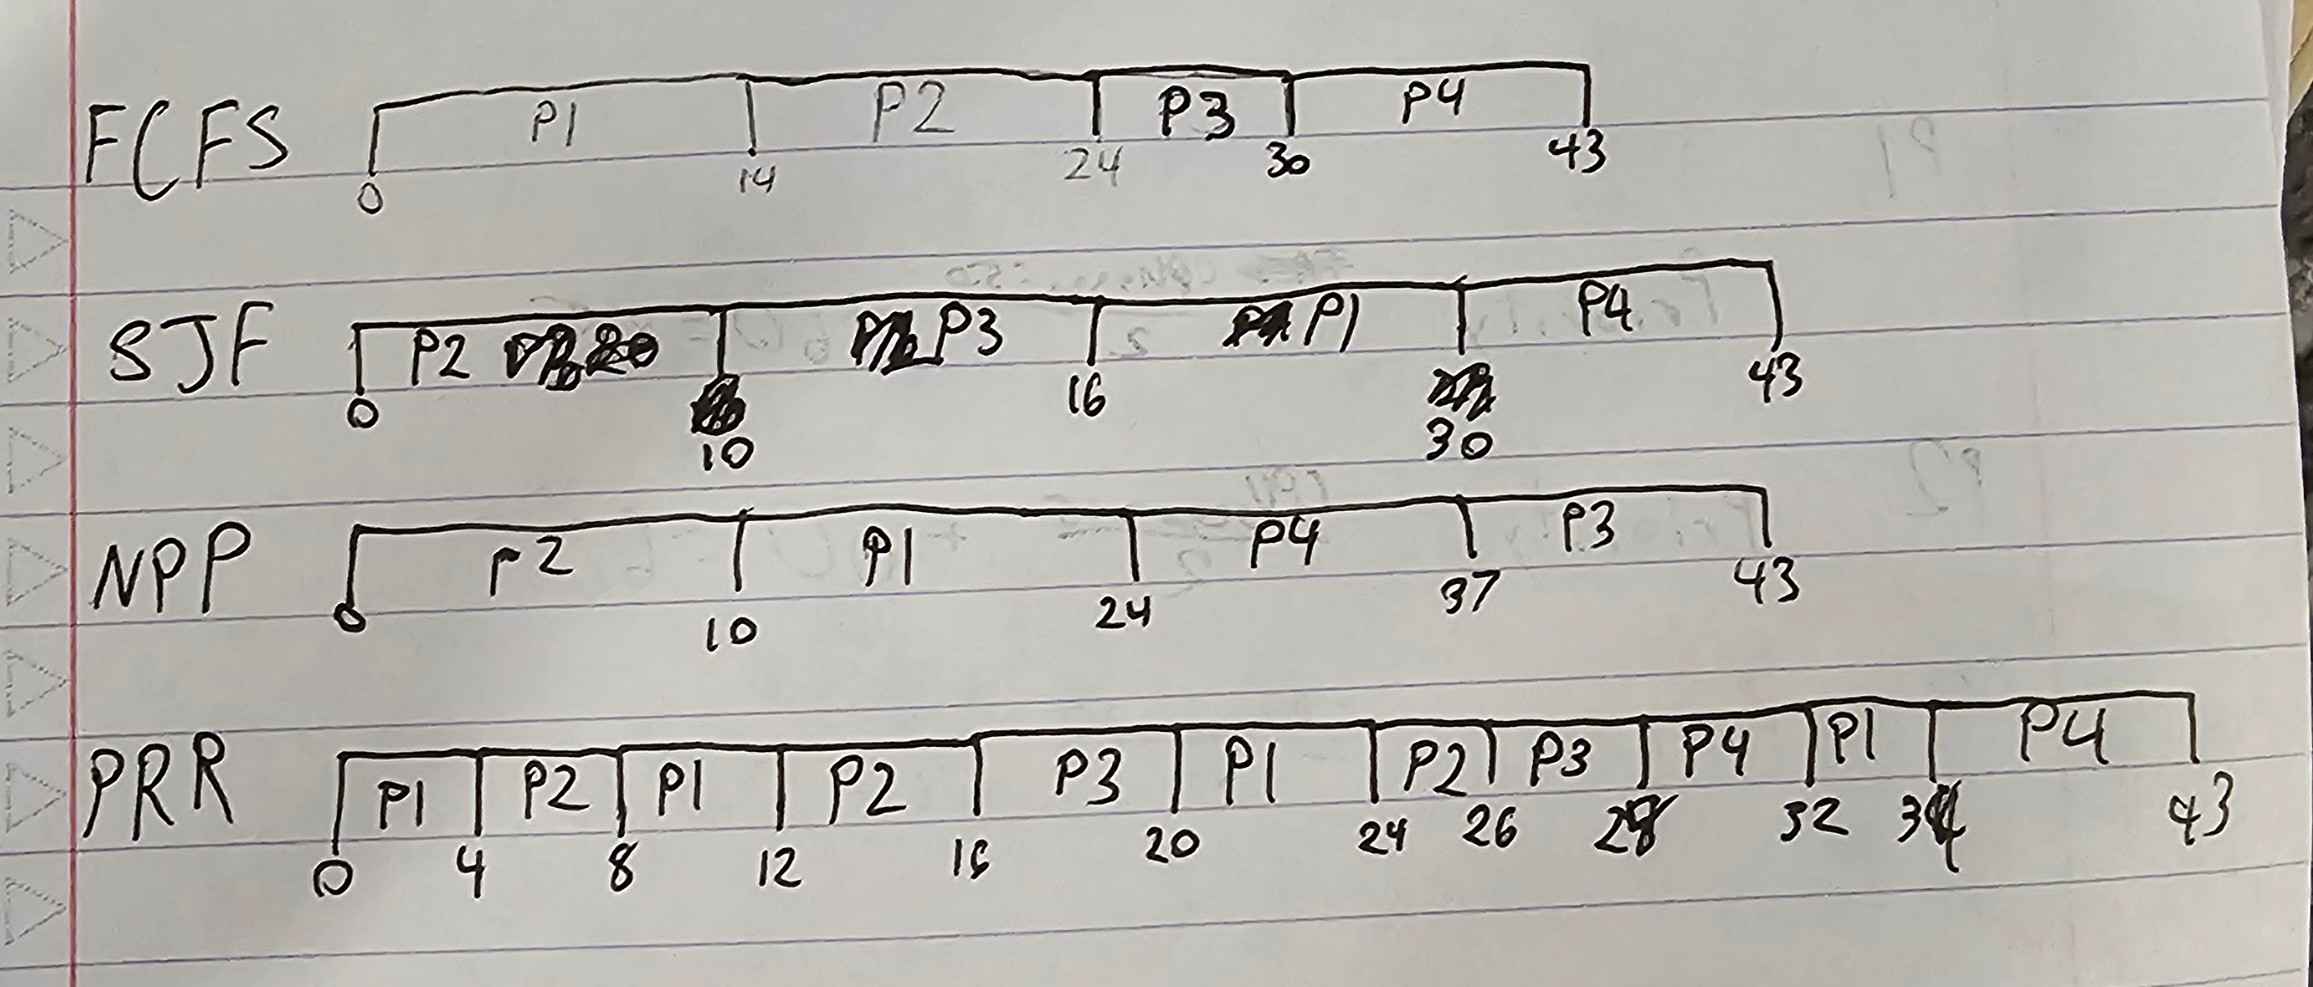 FCFS P1 P2 P3 P4
0 14 24 30 43
SJF P2 P3 P1 P4
0 10 16 30 43
NPP P2 P1 P4 P3
0 10 24 37 43
PRR P1 P2 P1 P2 P3 P1 P2 P3 P4 P1 P4
0 4 8 12 16 20 24 26 28 32 34 43